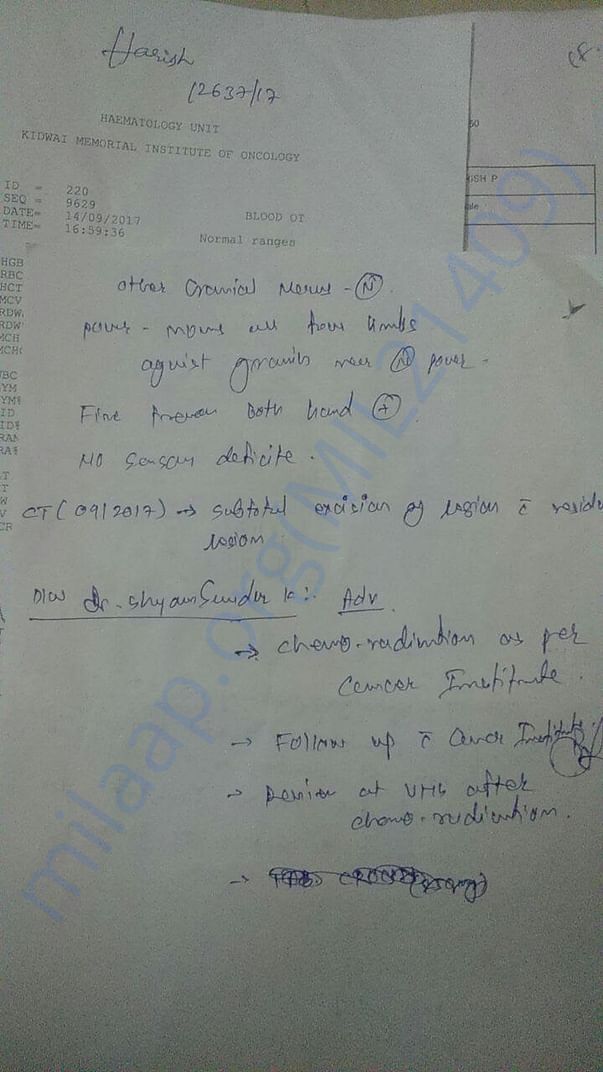 Harish
12637/17
HAEMATOLOGY UNIT
KIDWAI MEMORIAL INSTITUTE OF ONCOLOGY
ID = 220
SEQ = 9629
DATE= 14/09/2017
TIME= 16:59:36
BLOOD OT
Normal ranges
60
GSH P
ale
HGB
RBC
HCT
MCV
RDW
RDW
MCH
MCHC
other Cranial Nerves - (N)
power - moves all four limbs
against gravity near (N) power -
Fine tremor both hand (+)
NO sensory deficite .
CT (09/2017) → subtotal excision of lesion c̄ residu
lesion
D/W Dr. Shyam Sundar K :. Adv
→ chemo-radiation as per
Cancer Institute .
→ Follow up c̄ Cancer Institute.
→ Review at VHS after
chemo-radiation .
→
milaap.org(MIL21409)